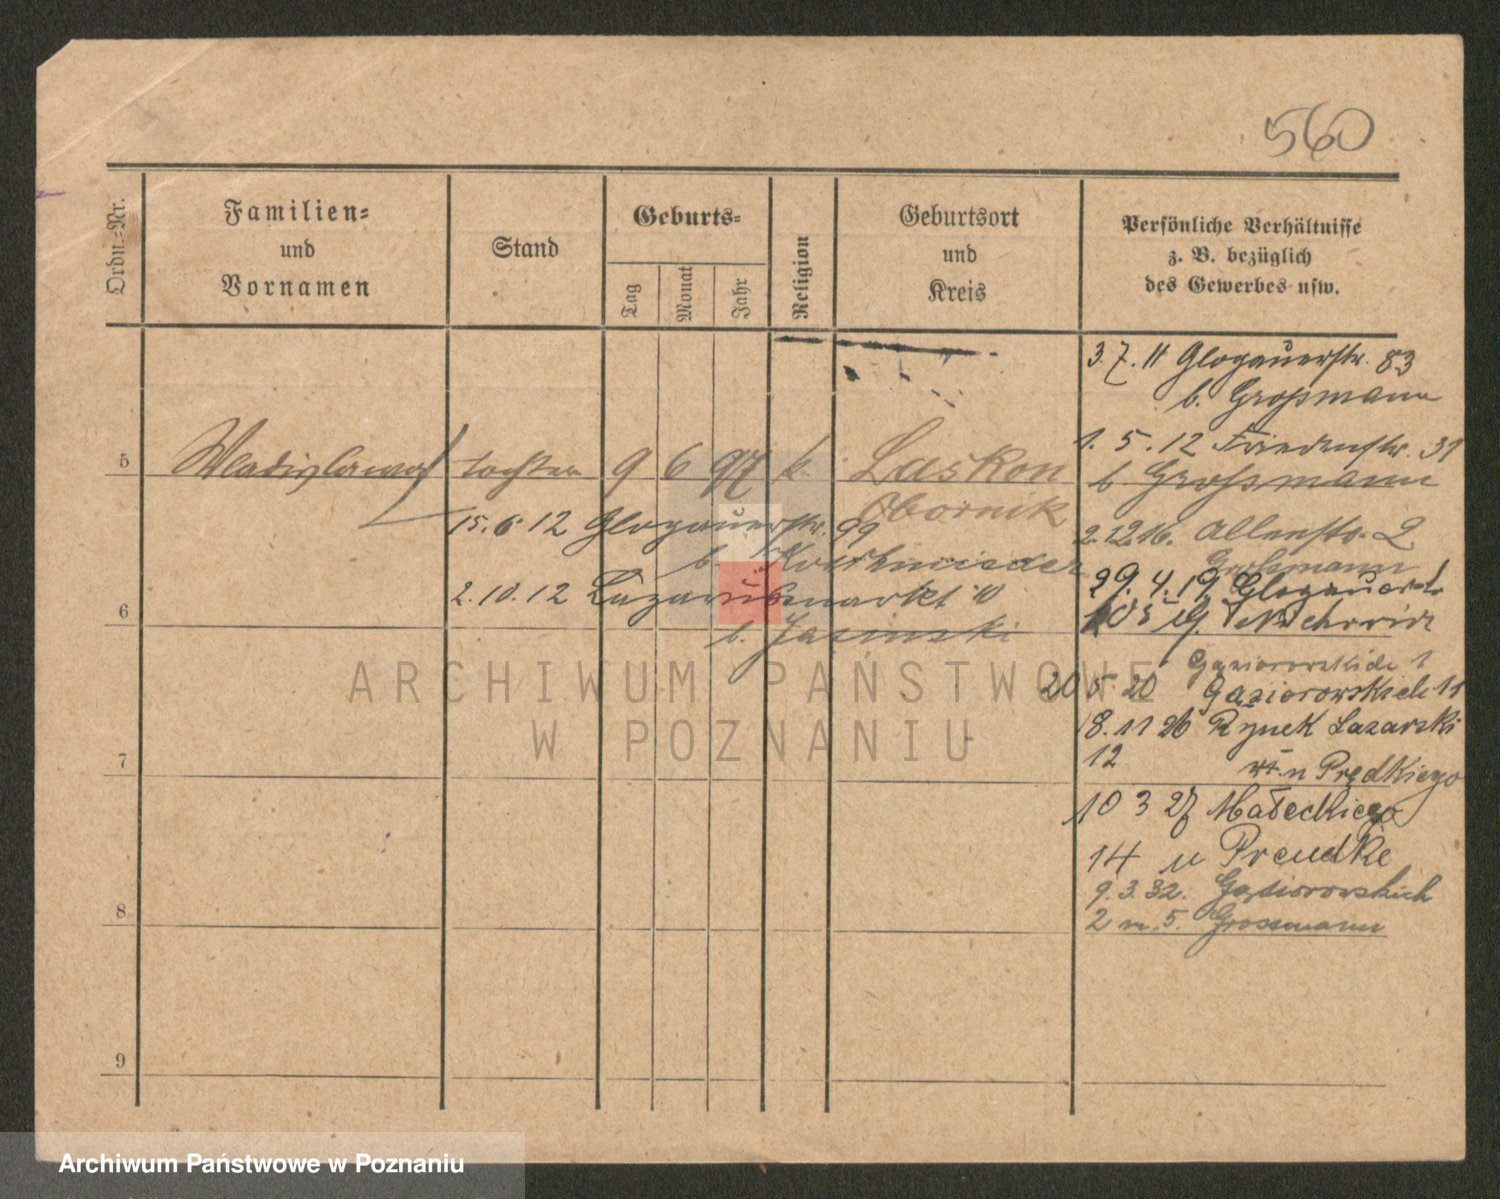 560
Ordn.-Nr.
Familien-
und
Vornamen
Stand
Geburts-
Tag
Monat
Jahr
Religion
Geburtsort
und
Kreis
Persönliche Verhältnisse
z. B. bezüglich
des Gewerbes usw.
3.7.11 Glogauerstr. 83
b. Grossmann
1.5.12 Friedenstr. 31
b Grossmann
5 Wladislawa Tochter 9 6 97 k. Laskon
Obornik
15.6.12 Glogauerstr. 99
b.
2.10.12 Lazarusmarkt 10
b. Jasinski
2.12.16. Allenstr. 2
Grossmann
29.4.19 Glogauerstr
6
Gasiorowskich 1
20 5 20 Gąsiorowskich 11
18.11 26 Rynek Lazarski
12 u Prędkiego
7
10 3 27 Małeckiego
14 u Preudke
9.3.32. Gąsiorowskich
2 m. 5. Grossmann
8
9
ARCHIWUM PAŃSTWOWE
W POZNANIU
Archiwum Państwowe w Poznaniu